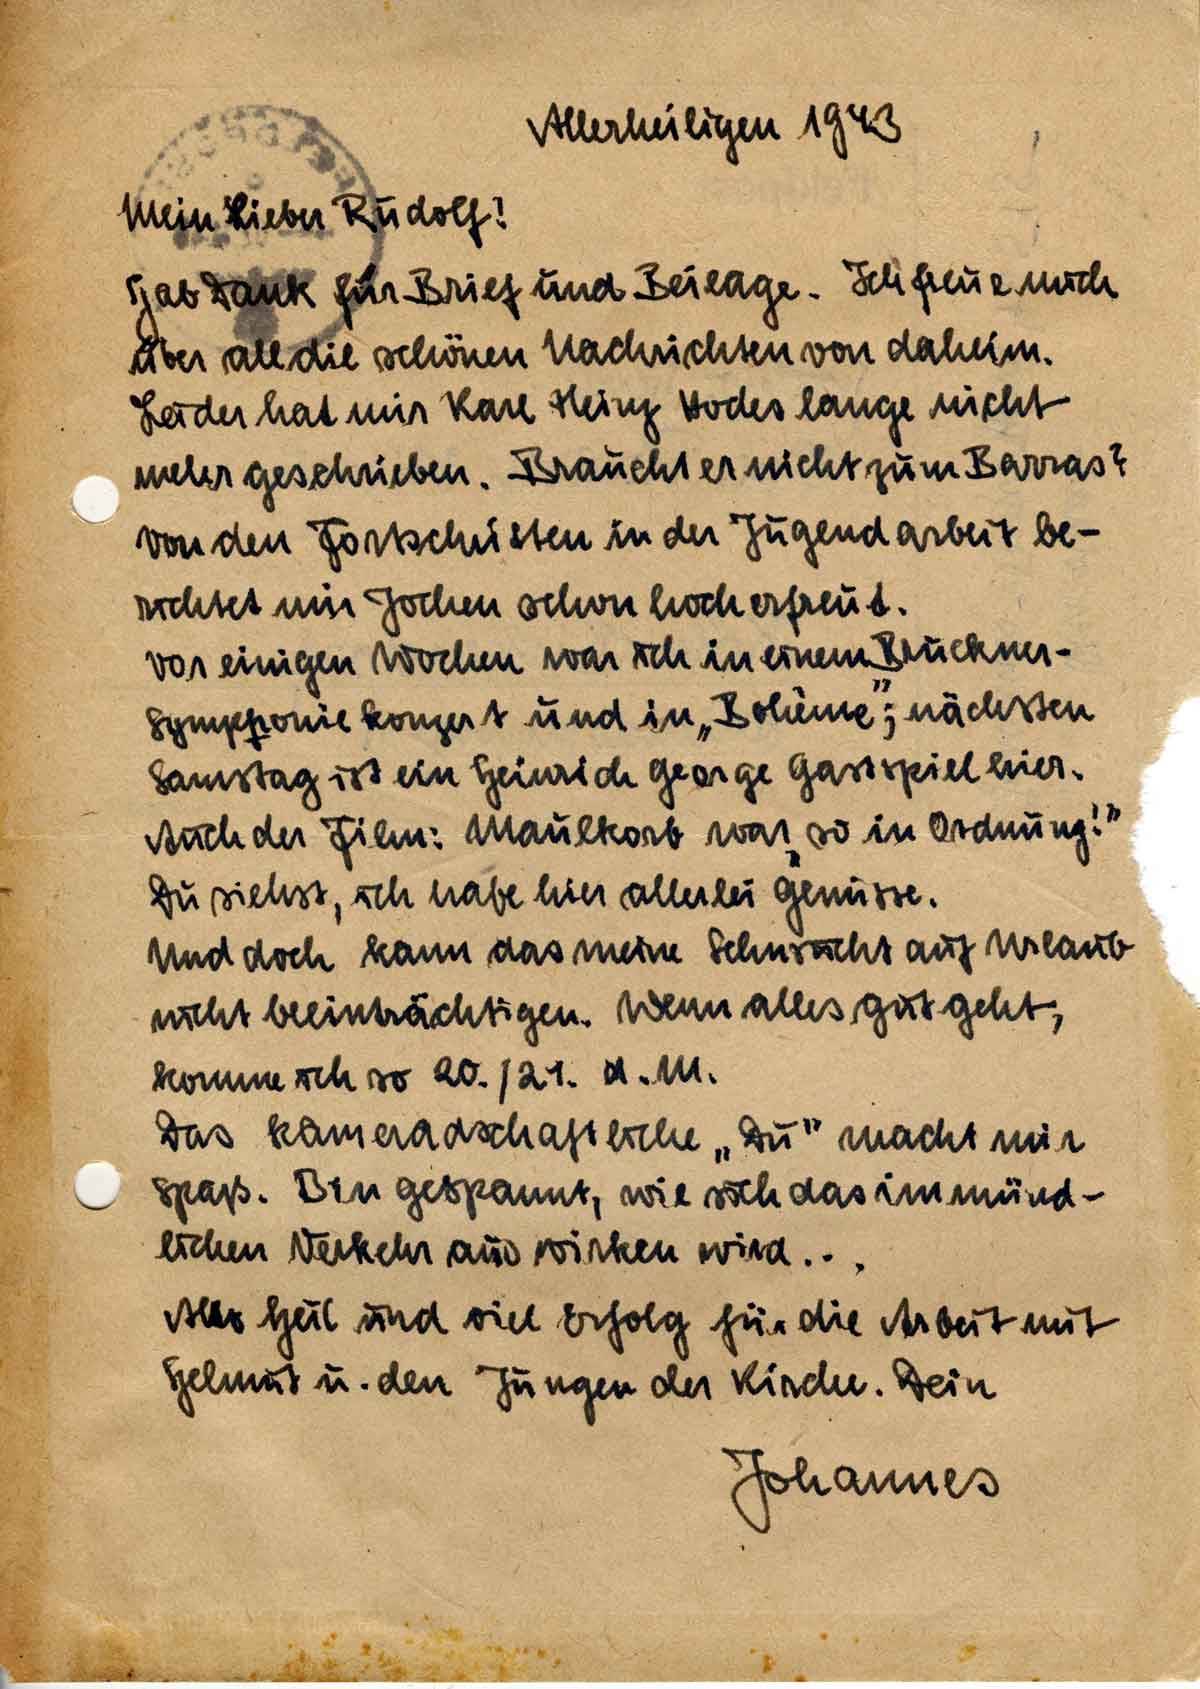 Allerheiligen 1943
Mein Lieber Rudolf!
Hab Dank für Brief und Beilage. Ich freue mich
über all die schönen Nachrichten von daheim.
Leider hat mir Karl Heinz Hodes lange nicht
mehr geschrieben. Braucht er nicht zum Barras?
Von den Fortschritten in der Jugendarbeit be-
richtet mir Jochen schon hocherfreut.
Vor einigen Wochen war ich in einem Bruckner-
Symphoniekonzert und in „Bohème"; nächsten
Samstag ist ein Heinrich George Gastspiel hier.
Auch der Film: Maulkorb war „so in Ordnung!"
Du siehst, ich habe hier allerlei Genüsse.
Und doch kann das meine Sehnsucht auf Urlaub
nicht beeinträchtigen. Wenn alles gut geht,
komme ich so 20./21. d. M.
Das kameradschaftliche „Du" macht mir
Spaß. Bin gespannt, wie sich das im münd-
lichen Verkehr auswirken wird...
Alles Heil und viel Erfolg für die Arbeit mit
Helmut u. den Jungen der Kirche. Dein
Johannes